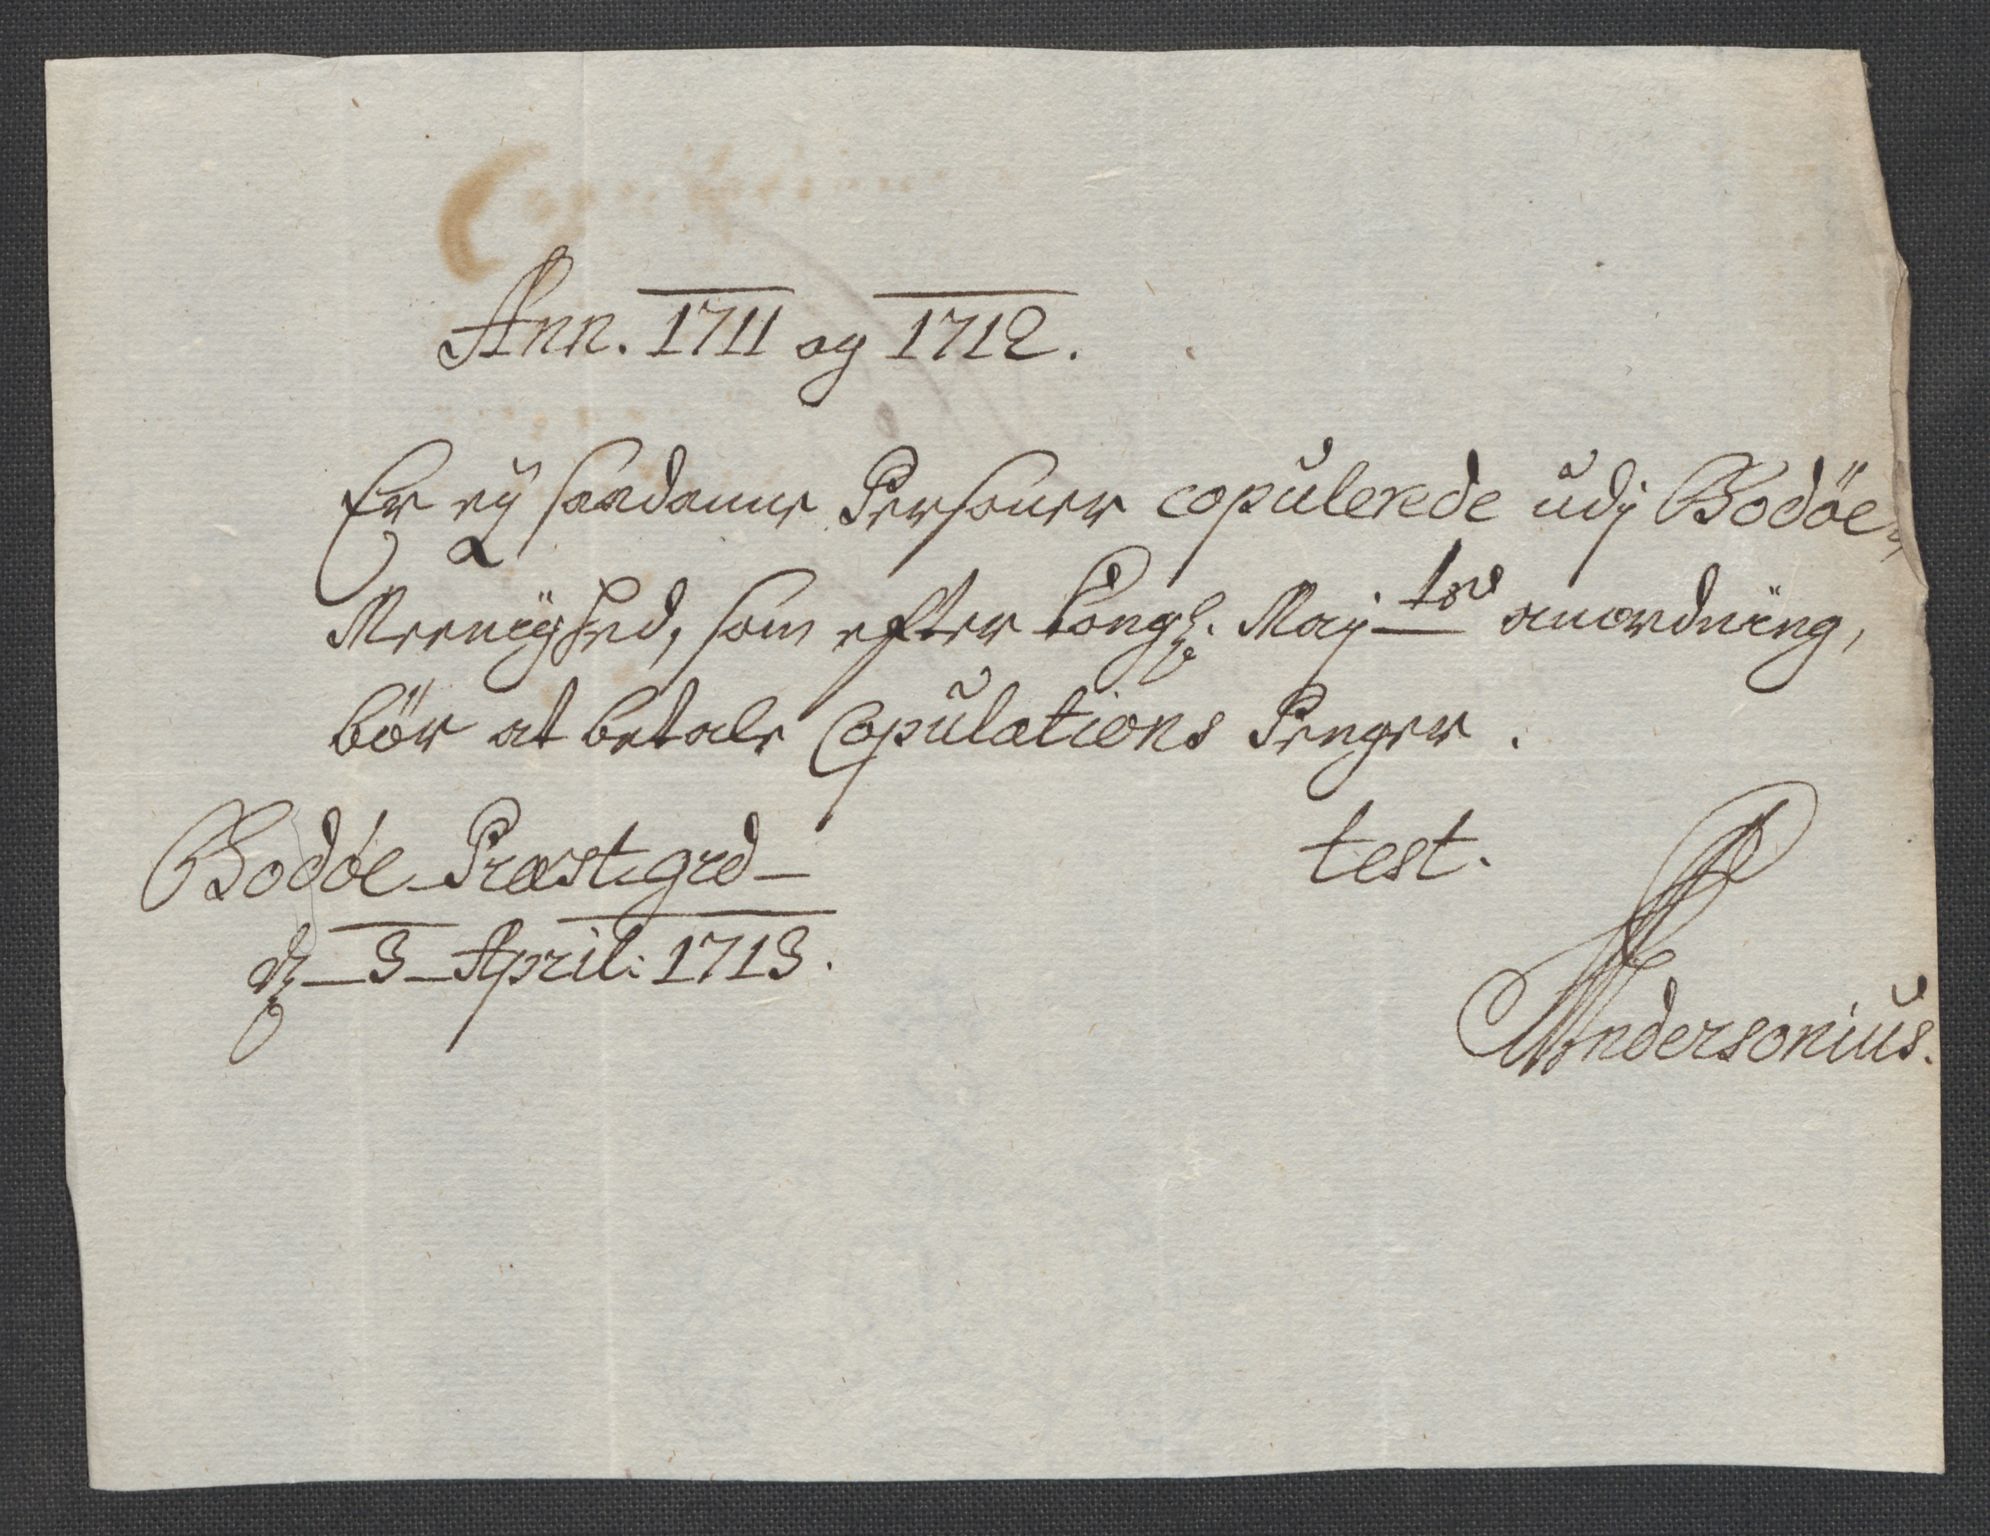 Ann. 1711 og 1712.
Er eÿ saadanne Personer copulerede udj Bodöe
Meenighed, som efter Kongl. Maj tes anordning,
bör at betale Copulations Penger.
Bodøe Præstegrd
d. 3 April: 1713.
test.
Andersonius.